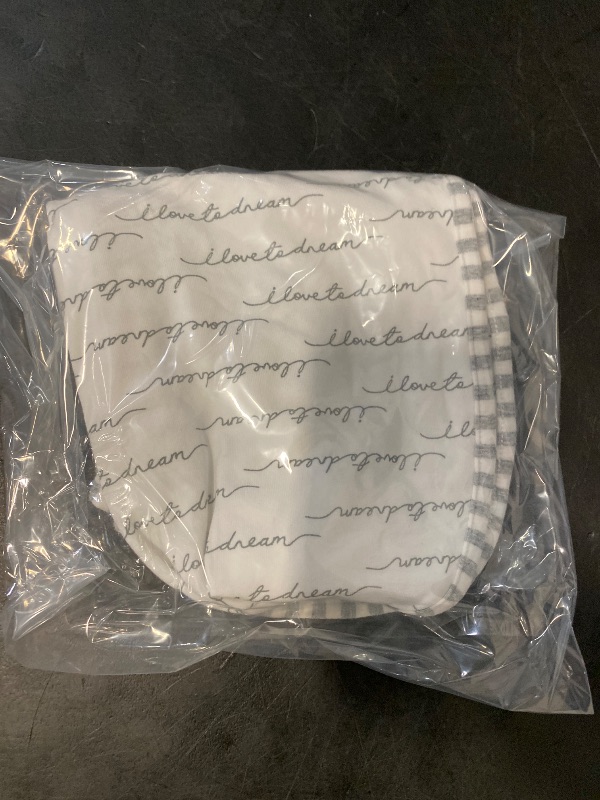 dream
i love to dream
dream
i lov
i love to dream
i love to dream
i love to dream
i love to dream
i love to dream
i love to dream
i love to dream
i love to
i love to dream
i l
to dream
i love to dream
love to d
i love to dream
love to dream
i lo
dream
dream
to dream